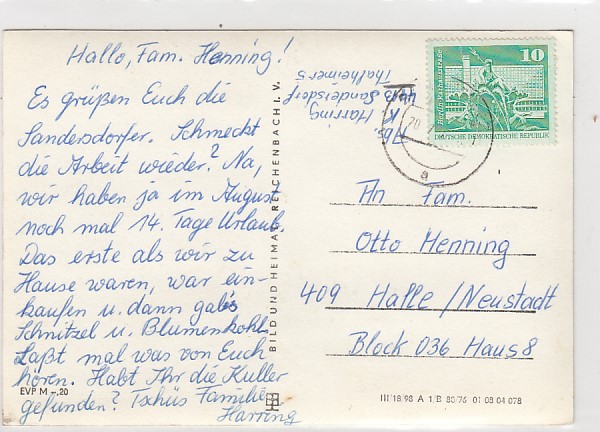 Hallo, Fam. Henning!
Es grüßen Euch die
Sandersdorfer. Schmeckt
die Arbeit wieder? Na,
wir haben ja im August
noch mal 14. Tage Urlaub.
Das erste als wir zu
Hause waren, war ein-
kaufen u. dann gab's
Schnitzel u. Blumenkohl.
Laßt mal was von Euch
hören. Habt Ihr die Kuller
gefunden? Tschüs Familie
Harring
EVP M -,20
BILD UND HEIMAT REICHENBACH I. V.
Abs.
K. Harring
4413 Sandersdorf
Thalheimer 5
10
DEUTSCHE DEMOKRATISCHE REPUBLIK
20
a
An Fam.
Otto Henning
409 Halle/Neustadt
Block 036 Haus 8
III/18/98 A 1/B 80/76 01 08 04 078